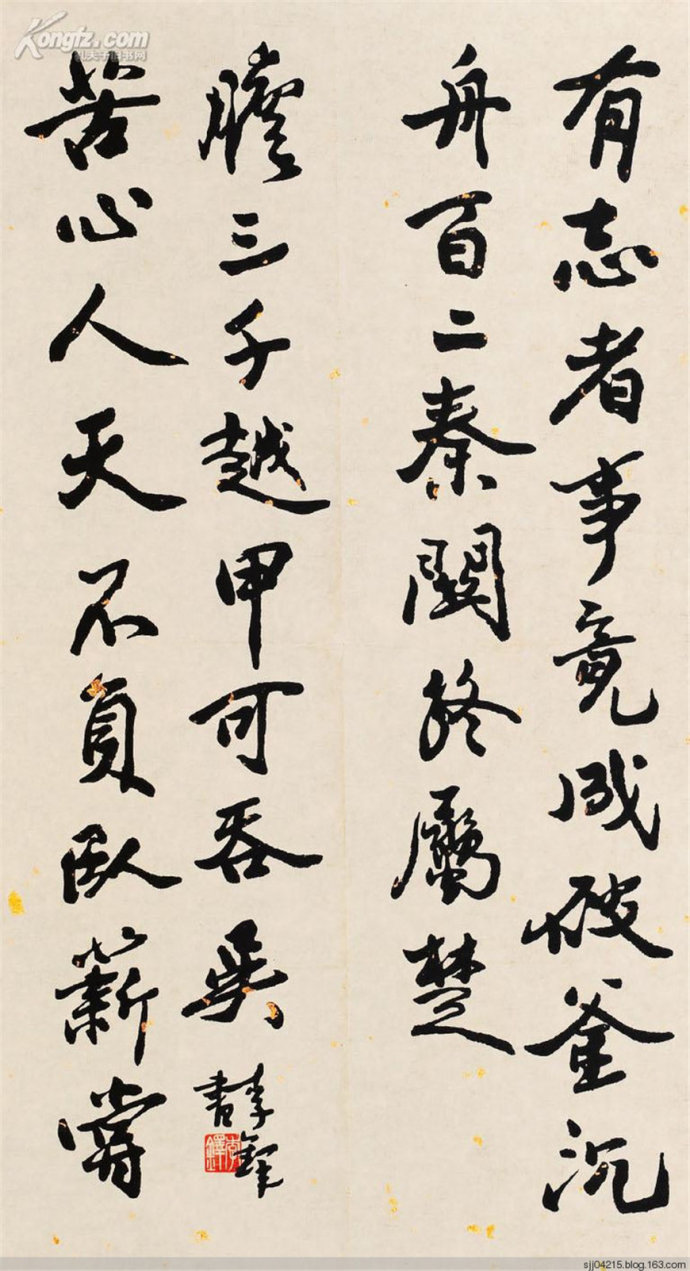 有志者事竟成破釜沉
舟百二秦關終屬楚
苦心人天不負臥薪嘗
膽三千越甲可吞吳
李鐸
書
李鐸
Kongfz.com
孔夫子旧书网
sjj04215.blog.163.com